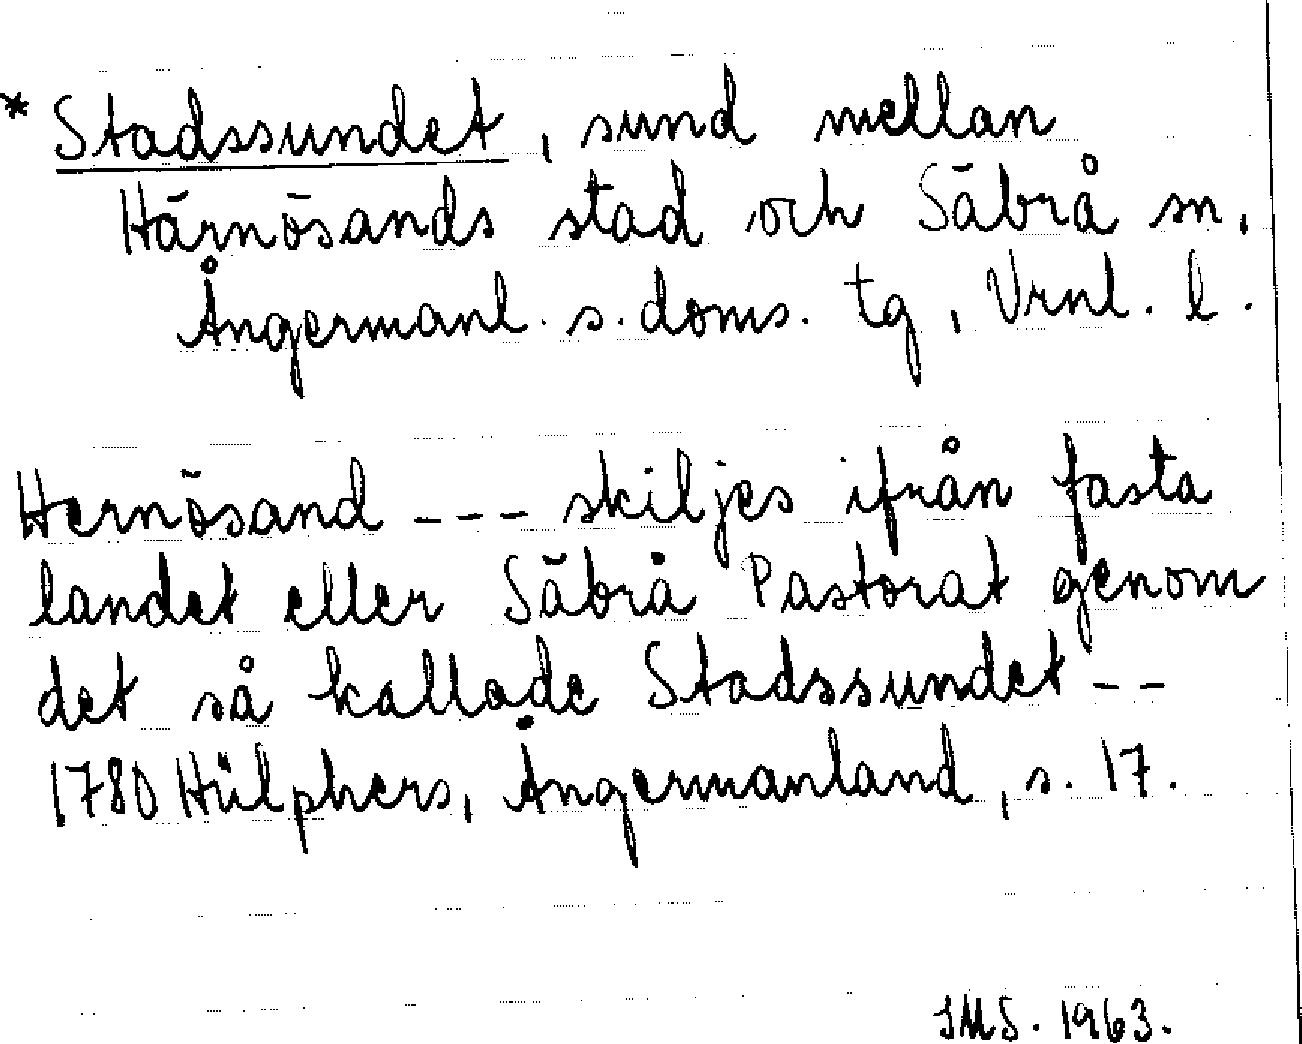 * Stadssundet, sund mellan
Härnösands stad och Säbrå sn,
Ångermanl. s. doms. tg, Vrnl. l.
Hernösand --- skiljes ifrån fasta
landet eller Säbrå Pastorat genom
det så kallade Stadssundet --
1780 Hülphers, Ångermanland, s. 17.
SMS. 1963.